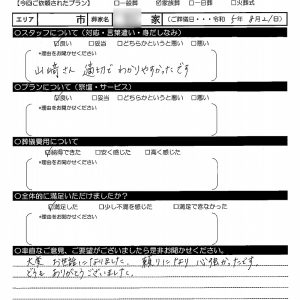 【今回ご依頼されたプラン】 □一般葬 ☑家族葬 □一日葬 □火葬式
エリア 市 葬家名 家 (ご葬儀日・令和 5年 8月 2/日)
○スタッフについて(対応・言葉遣い・身だしなみ)
☑良い □妥当 □どちらかというと悪い □悪い
*理由をお聞かせください
山崎さん 適切で わかりやすかったです
○プランについて(祭壇・サービス)
☑良い □妥当 □どちらかというと悪い □悪い
*理由をお聞かせください
○葬儀費用について
☑納得できた □安く感じた □高く感じた
*理由をお聞かせください
○全体的に満足いただけましたか?
☑満足した □少し不満を感じた □満足できなかった
*理由をお聞かせください
○率直なご意見、ご要望がございましたら是非お聞かせください。
大変 お世話になりました。 頼りになり 心強かったです。
どうも ありがとうございました。